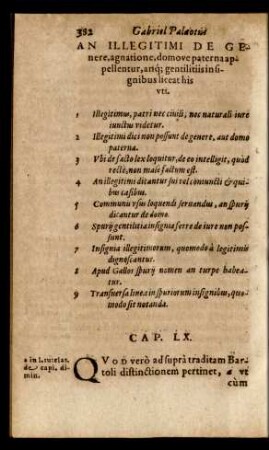 382 Gabriel Palæotus
AN ILLEGITIMI DE GE-
nere, agnatione, domove paterna ap-
pellentur, atq; gentilitiis in si-
gnibus liceat his
vti.
1 Illegitimus, patri nec ciuili, nec naturali iure
iunctus videtur.
2 Illegitimi dici non possunt de genere, aut domo
paterna.
3 Vbi de facto lex loquitur, de eo intelligit, quod
recte, non male factum est.
4 An illegitimi dicantur sui vel coniuncti & qui-
bus casibus.
5 Communis vsus loquendi seruandus, an spurij
dicantur de domo.
6 Spurij gentilitia insignia ferre de iure non pos-
sunt.
7 Insignia illegitimorum, quomodo à legitimis
dignoscantur.
8 Apud Gallos spurij nomen an turpe habea-
tur.
9 Transuersa linea in spuriorum insignibus, quo-
modo sit notanda.
CAP. LX.
a in l. tutelas.
de capi. di-
min.
QVod verò ad suprà traditam Bar-
toli distinctionem pertinet, a vt
cùm